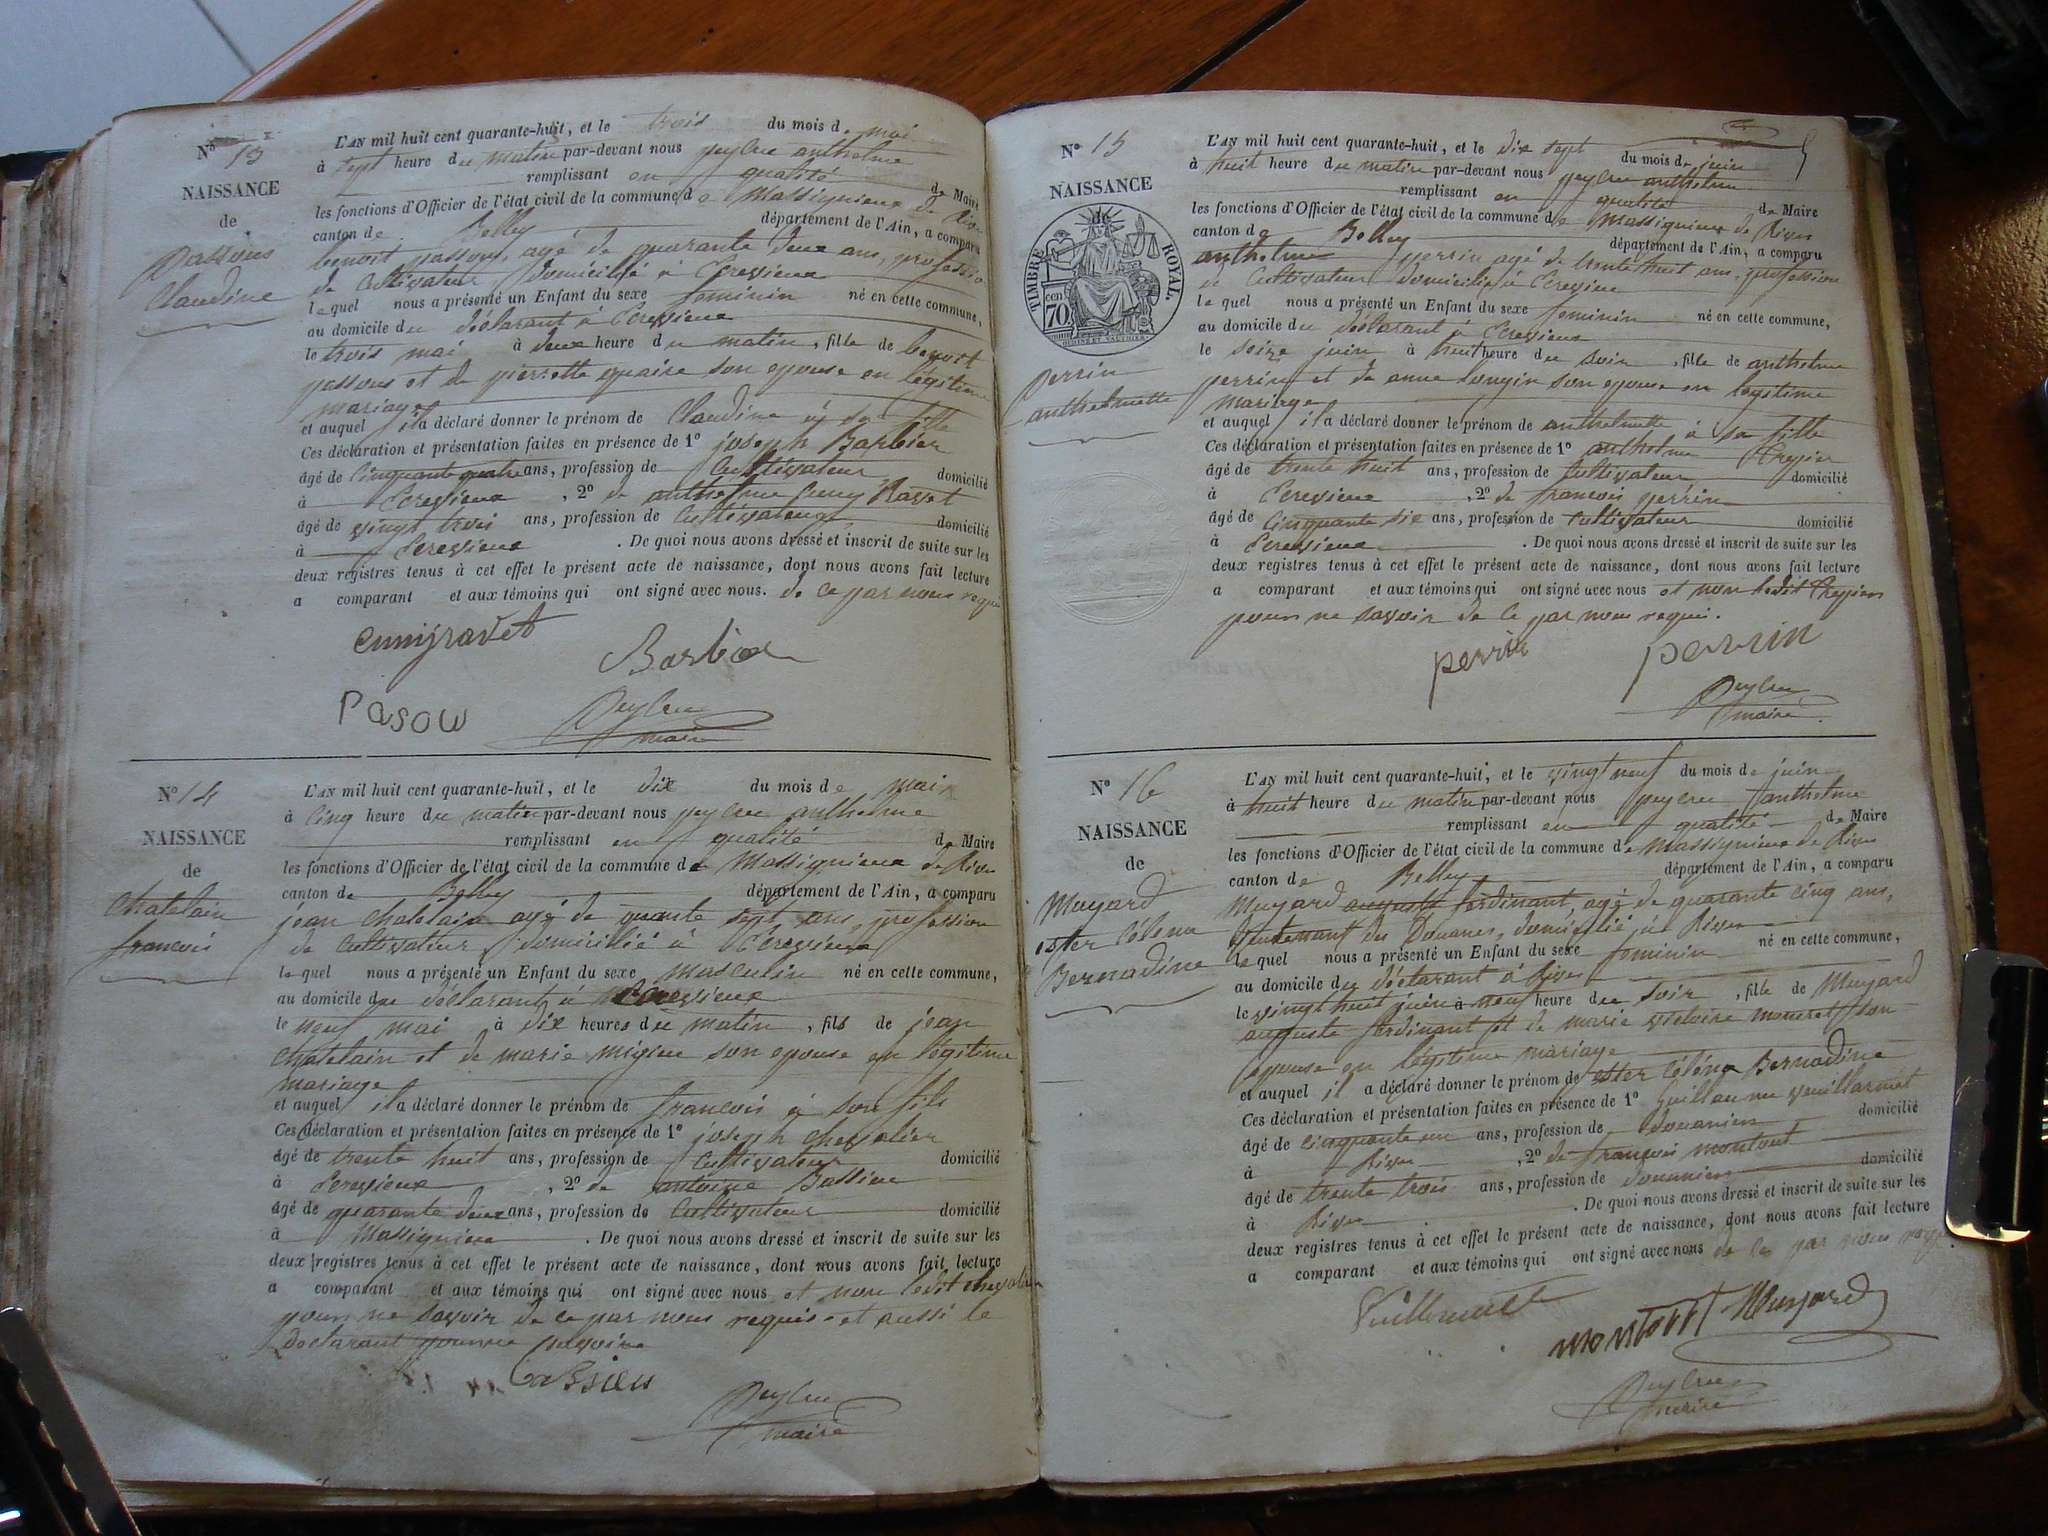 N° 13
NAISSANCE
de
Passous
Claudine
L'AN mil huit cent quarante-huit, et le trois du mois de mai
à sept heure du matin par-devant nous peylre anthelme
remplissant en qualité de Maire
les fonctions d'Officier de l'état civil de la commune de Massignieux de Rives
canton de Belley département de l'Ain, a comparu
benoit passous, agé de quarante deux ans, profession
de Cultivateur domicilié à Cressieux
lequel nous a présenté un Enfant du sexe feminin né en cette commune,
au domicile du déclarant à Cressieux
le trois mai à deux heure du matin, fille de benoit
passous et de pierrette son epouse en légitime
mariage
et auquel il a déclaré donner le prénom de Claudine à sa fille
Ces déclaration et présentation faites en présence de 1° joseph Barbier
âgé de Cinquante quatre ans, profession de Cultivateur domicilié
à Cressieux, 2° de anthelme Ravet
âgé de vingt trois ans, profession de Cultivateur domicilié
à Cressieux. De quoi nous avons dressé et inscrit de suite sur les
deux registres tenus à cet effet le présent acte de naissance, dont nous avons fait lecture
a comparant et aux témoins qui ont signé avec nous. de ce par nous requi
Barbier
Pasow
Peylre
maire
N° 14
NAISSANCE
de
Chatelain
francois
L'AN mil huit cent quarante-huit, et le dix du mois de mai
à Cinq heure du matin par-devant nous peylre anthelme
remplissant en qualité de Maire
les fonctions d'Officier de l'état civil de la commune de Massignieux de Rives
canton de Belley département de l'Ain, a comparu
jean Chatelain agé de quante sept ans, profession
de Cultivateur domicilié à Cressieux
lequel nous a présenté un Enfant du sexe masculin né en cette commune,
au domicile du déclarant à Cressieux
le neuf mai à dix heures du matin, fils de jean
chatelain et de marie migieu son epouse en légitime
mariage
et auquel il a déclaré donner le prénom de francois à son fils
Ces déclaration et présentation faites en présence de 1° joseph chevalier
âgé de trente huit ans, profession de Cultivateur domicilié
à Cressieux, 2° de antoine Bassieu
âgé de quarante deux ans, profession de Cultivateur domicilié
à Massignieux. De quoi nous avons dressé et inscrit de suite sur les
deux registres tenus à cet effet le présent acte de naissance, dont nous avons fait lecture
a comparant et aux témoins qui ont signé avec nous et non ledit chevalier
pour ne savoir de ce par nous requis et aussi le
Declarant
Peylre
maire
N° 15
NAISSANCE
de
TIMBRE ROYAL.
70 cen
Perrin
anthelmette
L'AN mil huit cent quarante-huit, et le dix sept du mois de juin
à huit heure du matin par-devant nous peylre anthelme
remplissant en qualité de Maire
les fonctions d'Officier de l'état civil de la commune de Massignieux de Rives
canton de Belley département de l'Ain, a comparu
anthelme perrin agé de trente huit ans, profession
de Cultivateur domicilié à Cressieux
lequel nous a présenté un Enfant du sexe feminin né en cette commune,
au domicile du déclarant à Cressieux
le seize juin à huit heure du soir, fille de anthelme
perrin et de anne Longin son epouse en legitime
mariage
et auquel il a déclaré donner le prénom de anthelmette à sa fille
Ces déclaration et présentation faites en présence de 1° anthelme
âgé de trente huit ans, profession de Cultivateur domicilié
à Cressieux, 2° de francois perrin
âgé de Cinquante six ans, profession de Cultivateur domicilié
à Cressieux. De quoi nous avons dressé et inscrit de suite sur les
deux registres tenus à cet effet le présent acte de naissance, dont nous avons fait lecture
a comparant et aux témoins qui ont signé avec nous et non ledit
pour ne savoir de ce par nous requi.
perrin perrin
Peylre
maire
N° 16
NAISSANCE
de
Muyard
ester Céléna
Bernadine
L'AN mil huit cent quarante-huit, et le vingt neuf du mois de juin
à huit heure du matin par-devant nous peylre anthelme
remplissant en qualité de Maire
les fonctions d'Officier de l'état civil de la commune de Massignieux de Rives
canton de Belley département de l'Ain, a comparu
Muyard auguste ferdinant, agé de quarante Cinq ans,
Lieutenant des Douanes, domicilié à Rives
lequel nous a présenté un Enfant du sexe feminin né en cette commune,
au domicile du déclarant à Rives
le vingt huit juin à neuf heure du soir, fille de Muyard
auguste ferdinant et de marie victoire son
epouse en légitime mariage
et auquel il a déclaré donner le prénom de ester Céléna Bernadine
Ces déclaration et présentation faites en présence de 1° Guillaume vuillermet
âgé de Cinquante un ans, profession de Douanier domicilié
à Rives, 2° de françois montout
âgé de trente trois ans, profession de Douanier domicilié
à Rives. De quoi nous avons dressé et inscrit de suite sur les
deux registres tenus à cet effet le présent acte de naissance, dont nous avons fait lecture
a comparant et aux témoins qui ont signé avec nous de ce par nous requi
Muyard
Peylre
maire